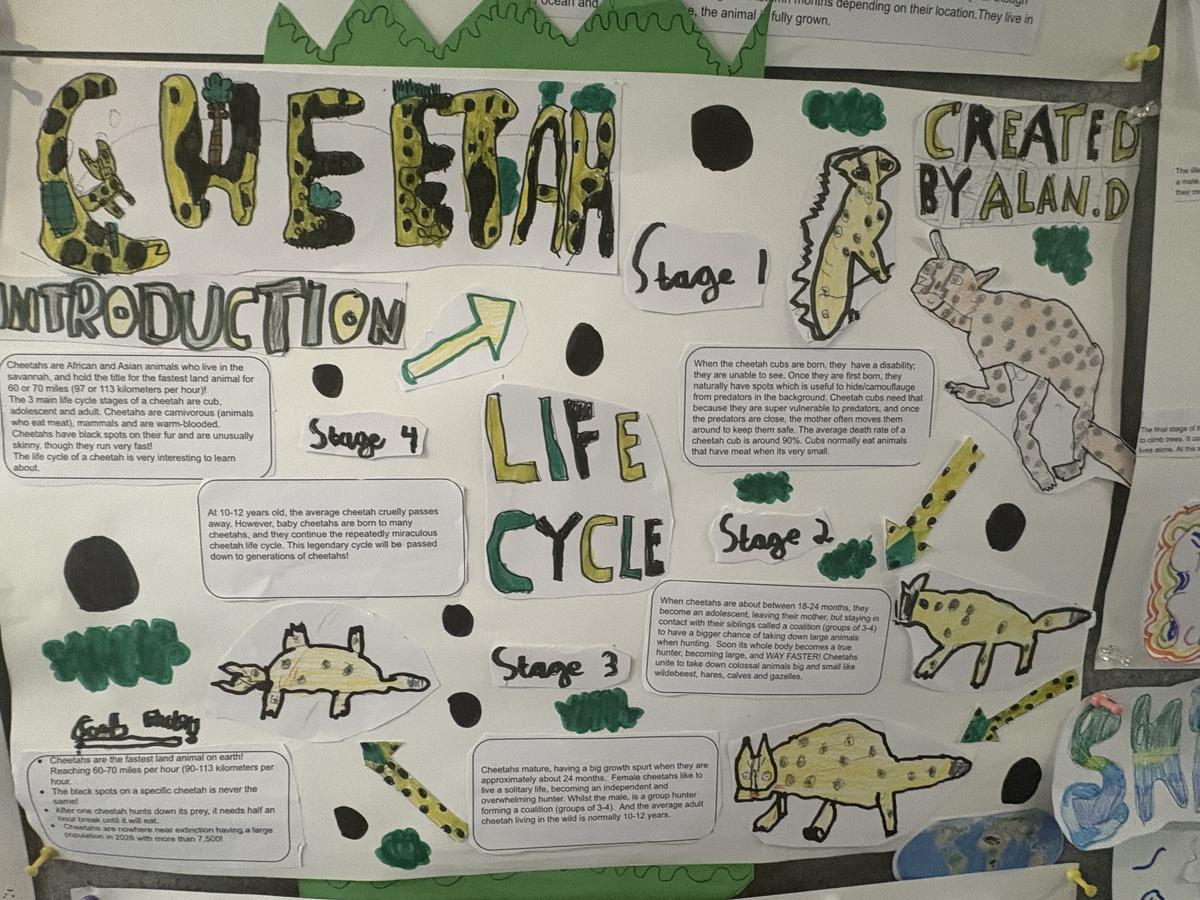 ocean and
months depending on their location.They live in
e, the animal is fully grown.
CHEETAH
CREATED
BY ALAN.D
INTRODUCTION
Cheetahs are African and Asian animals who live in the
savannah, and hold the title for the fastest land animal for
60 or 70 miles (97 or 113 kilometers per hour)!
The 3 main life cycle stages of a cheetah are cub,
adolescent and adult. Cheetahs are carnivorous (animals
who eat meat), mammals and are warm-blooded.
Cheetahs have black spots on their fur and are unusually
skinny, though they run very fast!
The life cycle of a cheetah is very interesting to learn
about.
LIFE
CYCLE
Stage 1
When the cheetah cubs are born, they have a disability;
they are unable to see. Once they are first born, they
naturally have spots which is useful to hide/camouflauge
from predators in the background. Cheetah cubs need that
because they are super vulnerable to predators, and once
the predators are close, the mother often moves them
around to keep them safe. The average death rate of a
cheetah cub is around 90%. Cubs normally eat animals
that have meat when its very small.
Stage 2
When cheetahs are about between 18-24 months, they
become an adolescent, leaving their mother, but staying in
contact with their siblings called a coalition (groups of 3-4)
to have a bigger chance of taking down large animals
when hunting. Soon its whole body becomes a true
hunter, becoming large, and WAY FASTER! Cheetahs
unite to take down colossal animals big and small like
wildebeest, hares, calves and gazelles.
Stage 3
Cheetahs mature, having a big growth spurt when they are
approximately about 24 months. Female cheetahs like to
live a solitary life, becoming an independent and
overwhelming hunter. Whilst the male, is a group hunter
forming a coalition (groups of 3-4). And the average adult
cheetah living in the wild is normally 10-12 years.
Stage 4
At 10-12 years old, the average cheetah cruelly passes
away. However, baby cheetahs are born to many
cheetahs, and they continue the repeatedly miraculous
cheetah life cycle. This legendary cycle will be passed
down to generations of cheetahs!
Cheetahs are the fastest land animal on earth!
Reaching 60-70 miles per hour (90-113 kilometers per
hour.
The black spots on a specific cheetah is never the
same!
After one cheetah hunts down its prey, it needs half an
hour break until it will eat.
Cheetahs are nowhere near extinction having a large
population in 2026 with more than 7,500!
The life
a male
their m
The final stage of it
to climb trees. It ca
lives alone. At this s